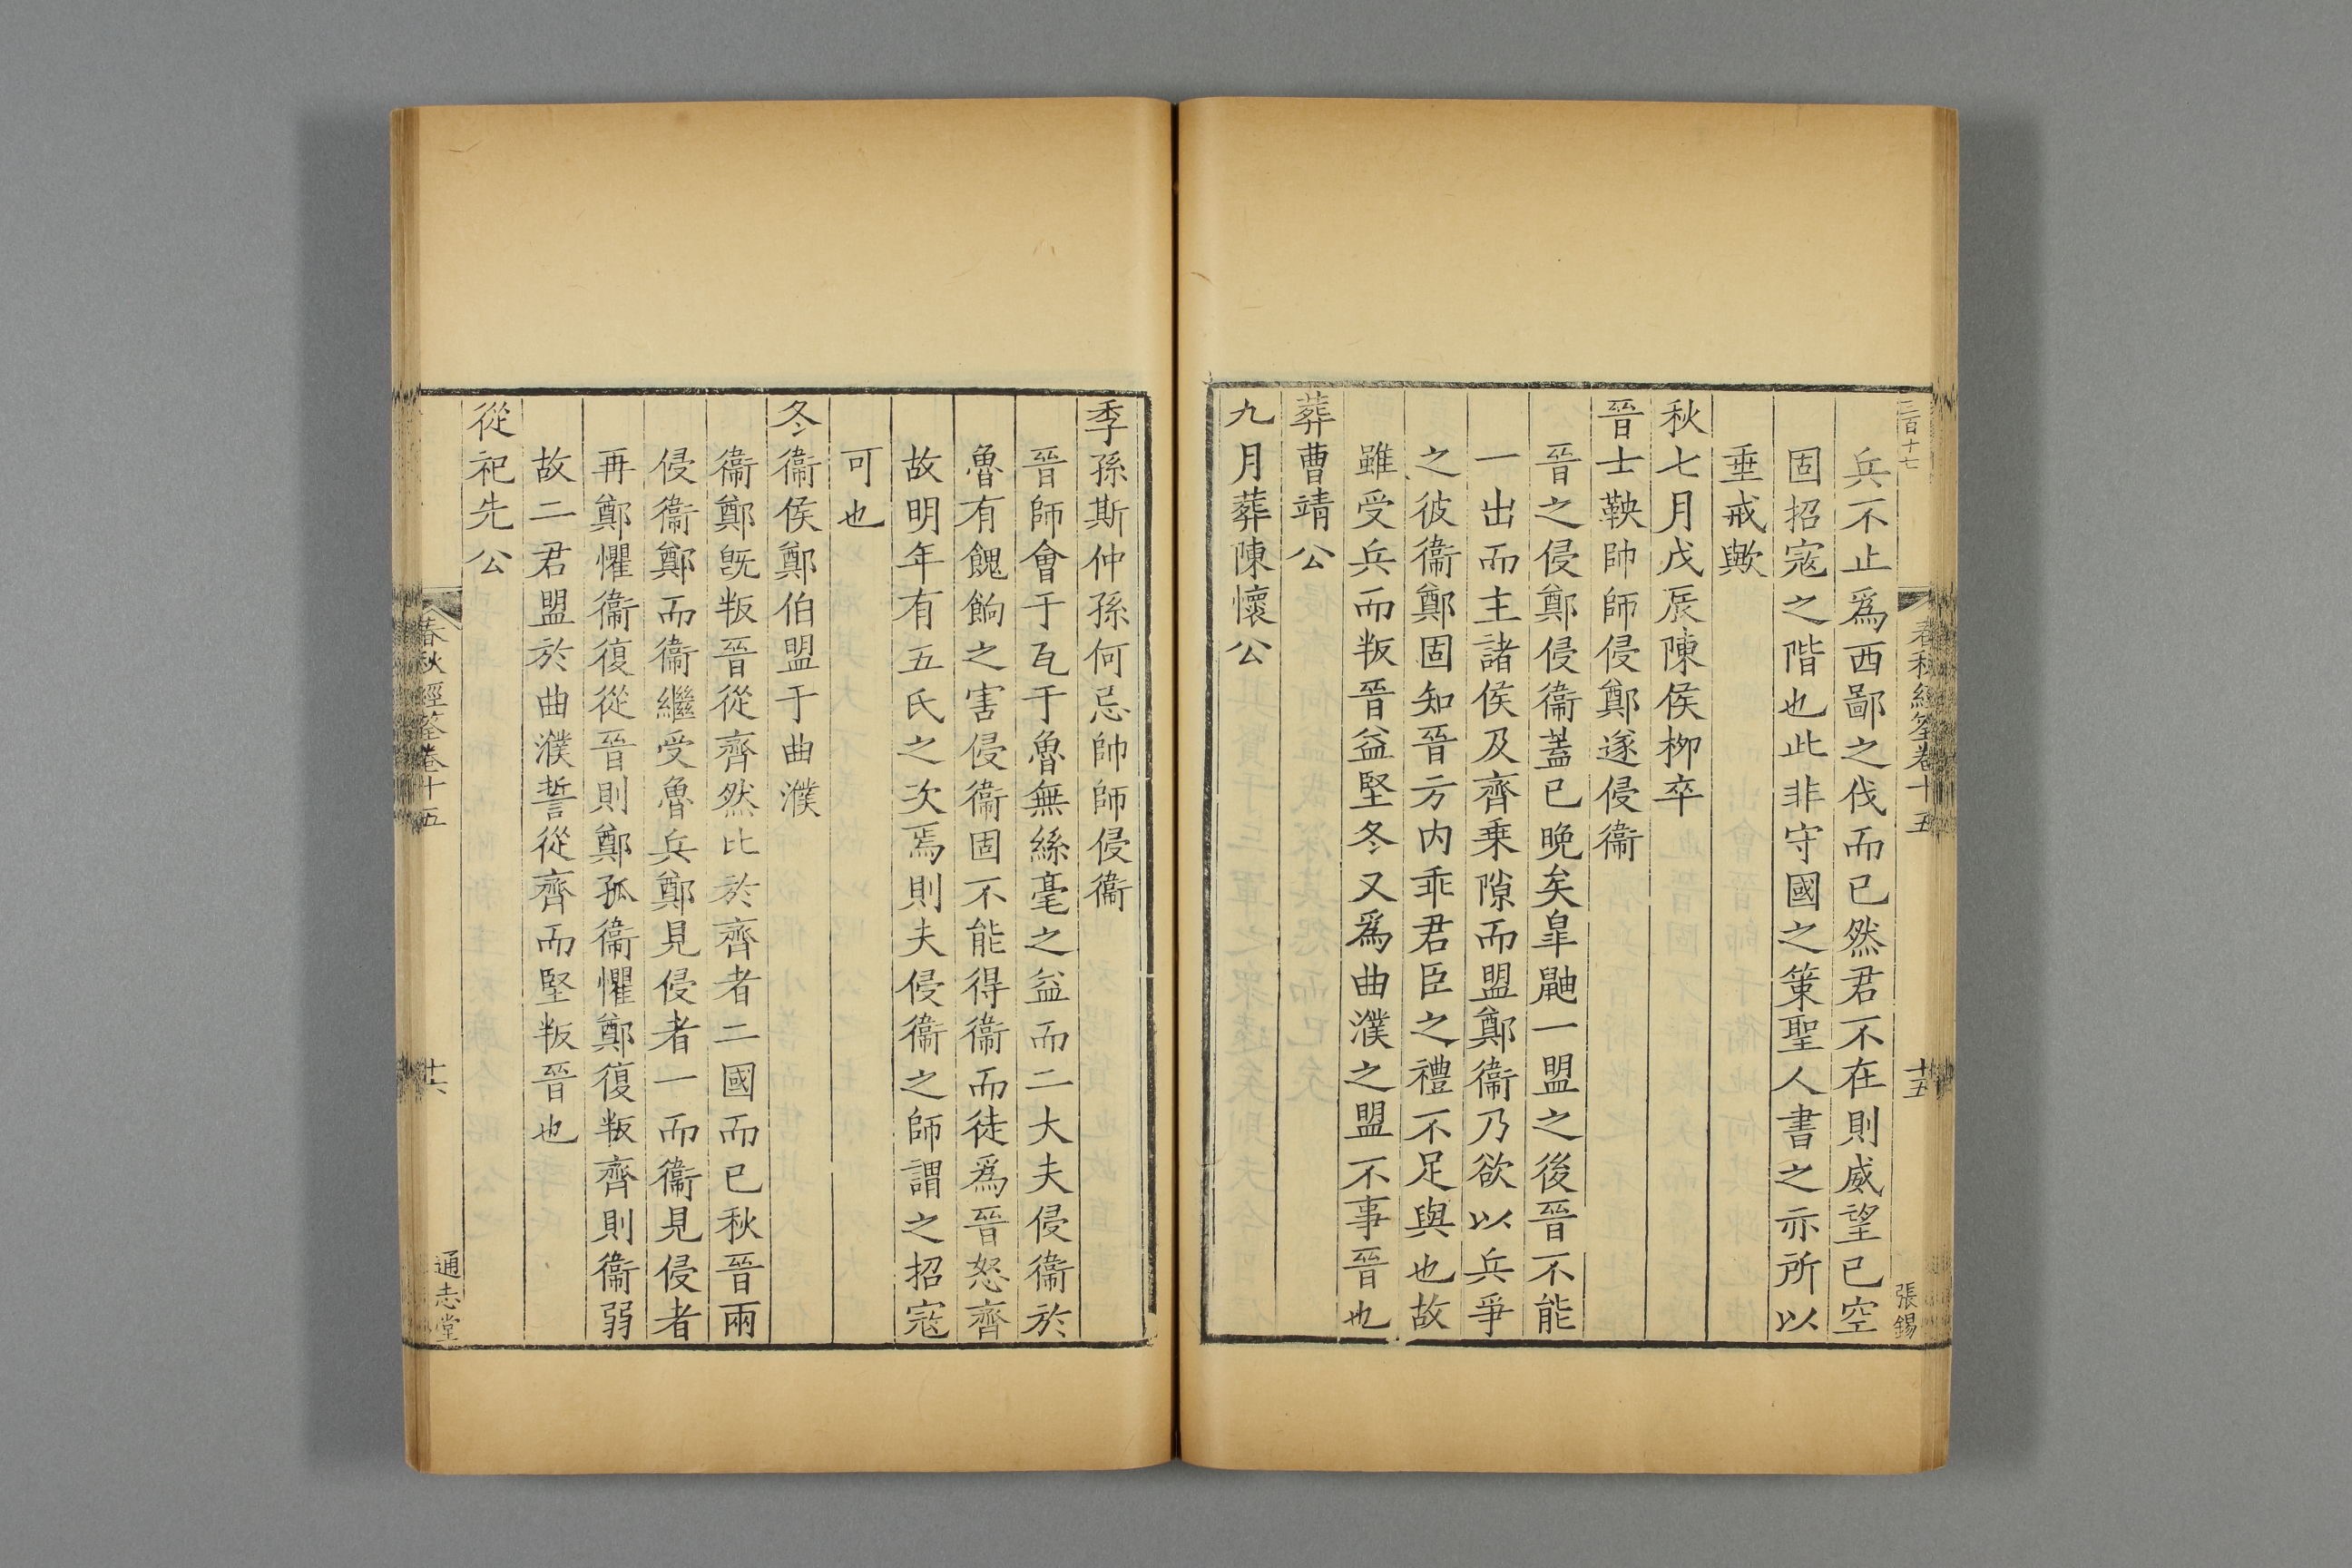 三百十七
春秋經筌卷十五
十五
張錫
兵不止爲西鄙之伐而已然君不在則威望已空
固招寇之階也此非守國之策聖人書之亦所以
垂戒歟
秋七月戊辰陳侯柳卒
晉士鞅帥師侵鄭遂侵衞
晉之侵鄭侵衞蓋已晚矣臯鼬一盟之後晉不能
一出而主諸侯及齊乗隙而盟鄭衞乃欲以兵爭
之彼衞鄭固知晉方内乖君臣之禮不足與也故
雖受兵而叛晉益堅冬又爲曲濮之盟不事晉也
葬曹靖公
九月葬陳懷公
季孫斯仲孫何忌帥師侵衞
晉師會于瓦于魯無絲毫之益而二大夫侵衞於
魯有餽餉之害侵衞固不能得衞而徒爲晉怒齊
故明年有五氏之次焉則夫侵衞之師謂之招寇
可也
冬衞侯鄭伯盟于曲濮
衞鄭旣叛晉從齊然比於齊者二國而已秋晉兩
侵衞鄭而衞繼受魯兵鄭見侵者一而衞見侵者
再鄭懼衞復從晉則鄭孤衞懼鄭復叛齊則衞弱
故二君盟於曲濮誓從齊而堅叛晉也
從祀先公
春秋經筌卷十五
十六
通志堂